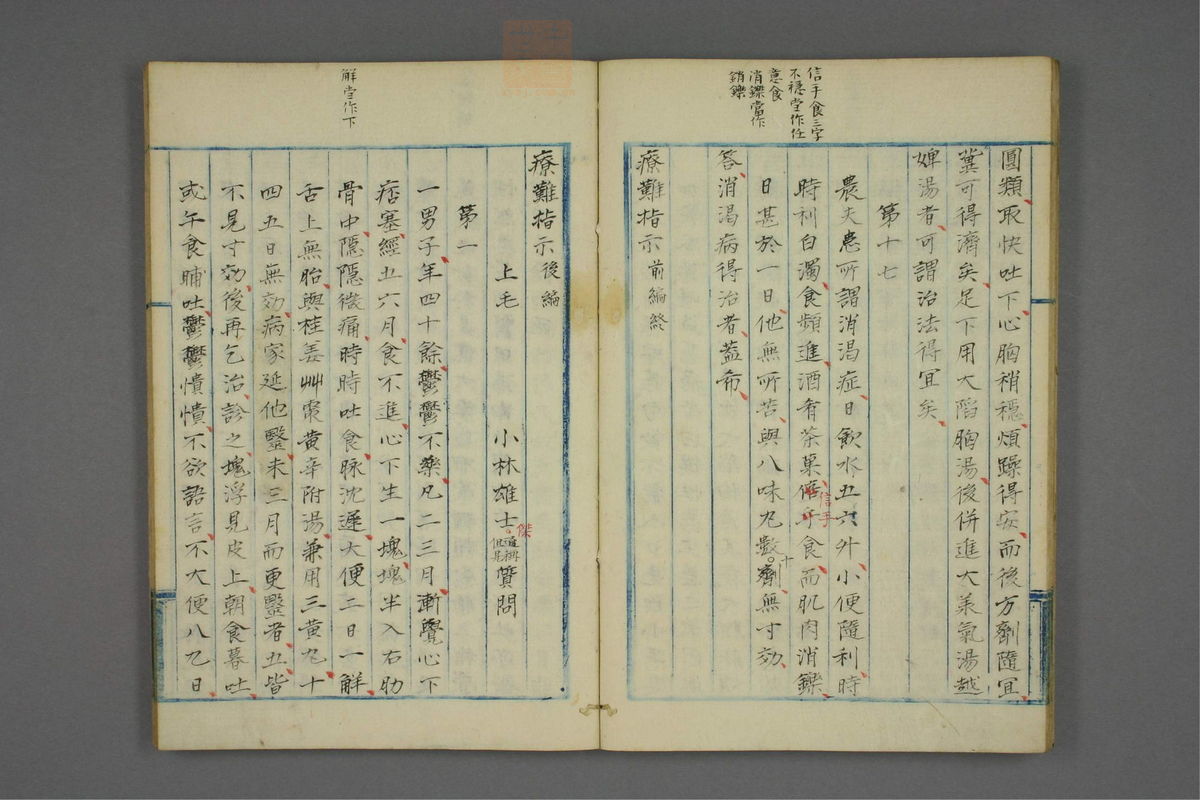 信手食三字
不穩當作任
意食
消鑠當作
銷鑠
圓類取快吐下心胸稍穩煩躁得安而後方劑隨宜
糞可得濟矣足下用大陷胸湯後併進大羕氣湯越
婢湯者可謂治法得宜矣
第十七
農夫患所謂消渴症日飲水五六外小便隨利時
時利白濁食頻進酒肴茶菓信手食而肌肉消鑠
信手
日甚於一日他無所苦與八味丸數劑無寸効
十
答消渴病得治者蓋希
療難指示前編終
解當作下
療難指示後編
上毛 小林雄士質問
傑
第一
一男子年四十餘鬱鬱不樂凡二三月漸覺心下
痞塞經五六月食不進心下生一塊塊半入右肋
骨中隱隱微痛時時吐食脉沈遲大便二日一解
舌上無胎與桂姜艸棗黃辛附湯兼用三黃丸十
四五日無効病家延他醫未三月而更醫者五皆
不見寸効後再乞治診之塊浮見皮上朝食暮吐
或午食晡吐鬱鬱憒憒不欲語言不大便八九日